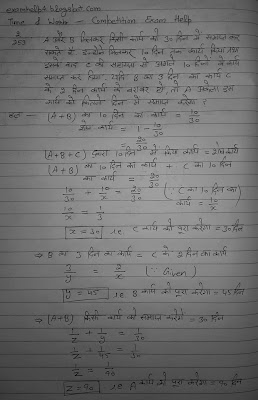 examhelp4.blogspot.com
Time & Work - Competition Exam Help
A और B मिलकर किसी कार्य को 30 दिन में समाप्त कर
सकते हैं। उन्होंने मिलकर 10 दिन तक कार्य किया तथा
कार्य
समाप्त कर दिया। यदि B का 3 दिन का कार्य C
के 2 दिन के कार्य के बराबर हो, तो A अकेला इस
कार्य को कितने दिन में समाप्त करेगा?
(A+B) का 10 दिन का कार्य = 10/30
शेष कार्य = 1 - 10/30
= 20/30
(A+B+C) द्वारा 10 दिन में किया कार्य = शेष कार्य
(A+B) का 10 दिन का कार्य + C का 10 दिन
का कार्य = 20/30
10/30 + 10/x = 20/30 (∵ C का 10 दिन का
कार्य = 10/x)
10/x = 1/3
x = 30 i.e C कार्य को पूरा करेगा = 30 दिन
⇒ B का 3 दिन का कार्य = C के 2 दिन का कार्य
3/y = 2/x (∵ Given)
y = 45 i.e B कार्य को पूरा करेगा = 45 दिन
⇒ (A+B) किसी कार्य को समाप्त करेंगे = 30 दिन
1/z + 1/y = 1/30
1/z + 1/45 = 1/30
1/z = 1/90
z = 90 i.e A कार्य को पूरा करेगा = 90 दिन